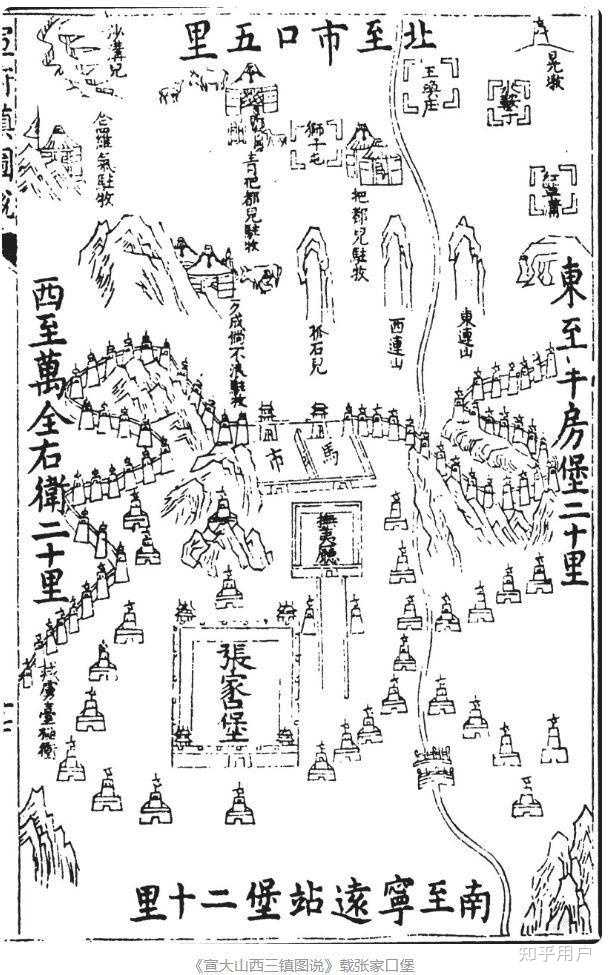 北至市口五里
晃墩
王喚庄
獅子屯
沙溝兒
青把都兒駐牧
把都兒駐牧
羅氣駐牧
東連山
西連山
石兒
成倘不浪駐牧
東至羊房堡二十里
西至萬全右衛二十里
馬市
撫夷廳
張家口堡
虜臺極衝
南至寧遠站堡二十里
鎮圖說
《宣大山西三镇图说》载张家口堡
知乎用户